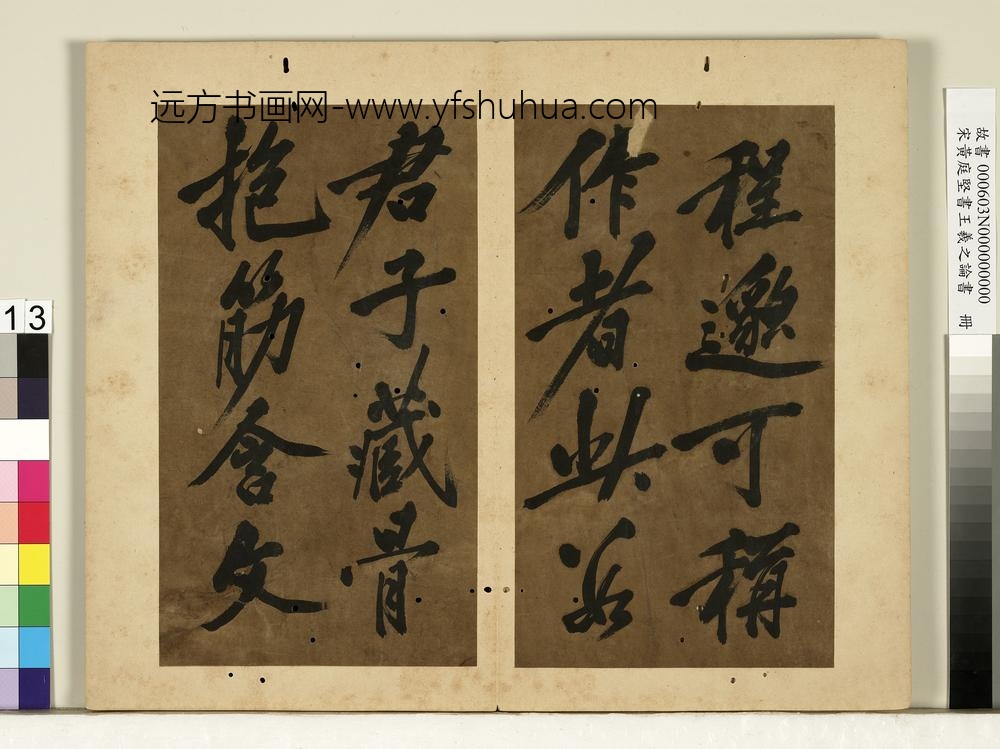 远方书画网-www.yfshuhua.com
程邈可稱
作者此若
君子藏骨
抱筋含文
故書 000603N000000000
宋黃庭堅書王羲之論書 冊
13